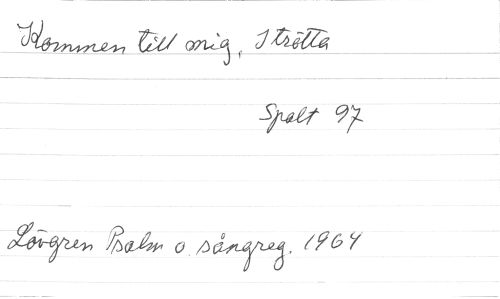 Kommen till mig, I trötta
Spalt 97
Lövgren Psalm o. sångreg. 1964